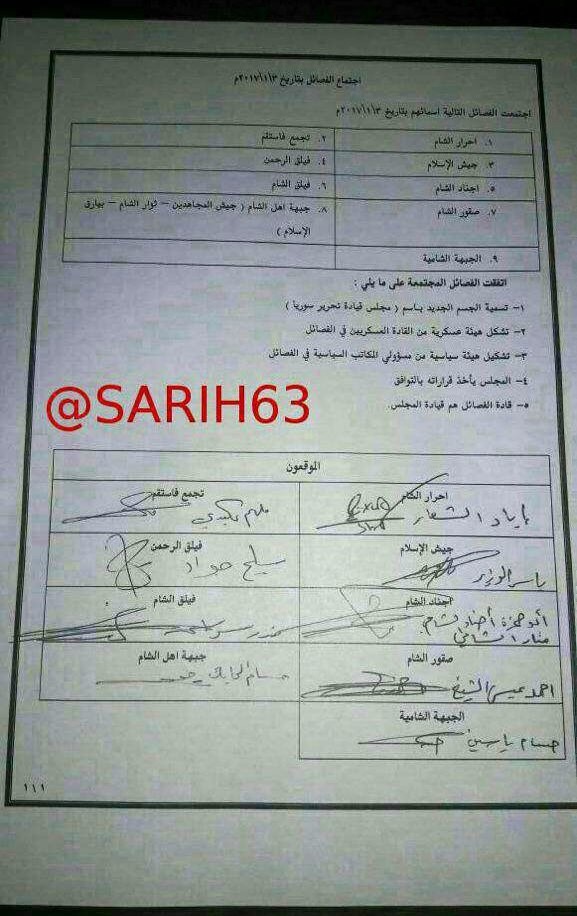 اجتماع الفصائل بتاريخ ٢٠١٧/١/٣م
اجتمعت الفصائل التالية اسمائهم بتاريخ ٢٠١٧/١/٣م
١. احرار الشام
٢. تجمع فاستقم
٣. جيش الإسلام
٤. فيلق الرحمن
٥. اجناد الشام
٦. فيلق الشام
٧. صقور الشام
٨. جبهة اهل الشام ( جيش المجاهدين – ثوار الشام – بيارق
الإسلام )
٩. الجبهة الشامية
اتفقت الفصائل المجتمعة على ما يلي :
١– تسمية الجسم الجديد باسم ( مجلس قيادة تحرير سوريا )
٢– تشكل هيئة عسكرية من القادة العسكريين في الفصائل
٣– تشكيل هيئة سياسية من مسؤولي المكاتب السياسية في الفصائل
٤– المجلس يأخذ قراراته بالتوافق
٥– قادة الفصائل هم قيادة المجلس.
@SARIH63
الموقعون
احرار الشام
إياد الشعار
تجمع فاستقم
ملهم عكيدي
جيش الإسلام
ياسر الوزير
فيلق الرحمن
سليم جواد
أجناد الشام
أبو حمزة أجناد الشام
منار الشامي
فيلق الشام
منذر سراس
صقور الشام
احمد عيسى الشيخ
جبهة اهل الشام
الجبهة الشامية
حسام ياسين
١١١